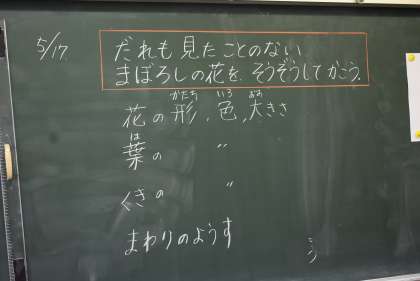 5/17
だれも見たことのない
まぼろしの花を、そうぞうしてかこう。
かたち いろ おお
花の形、色、大きさ
は
葉の 〃
くきの 〃
まわりのようす